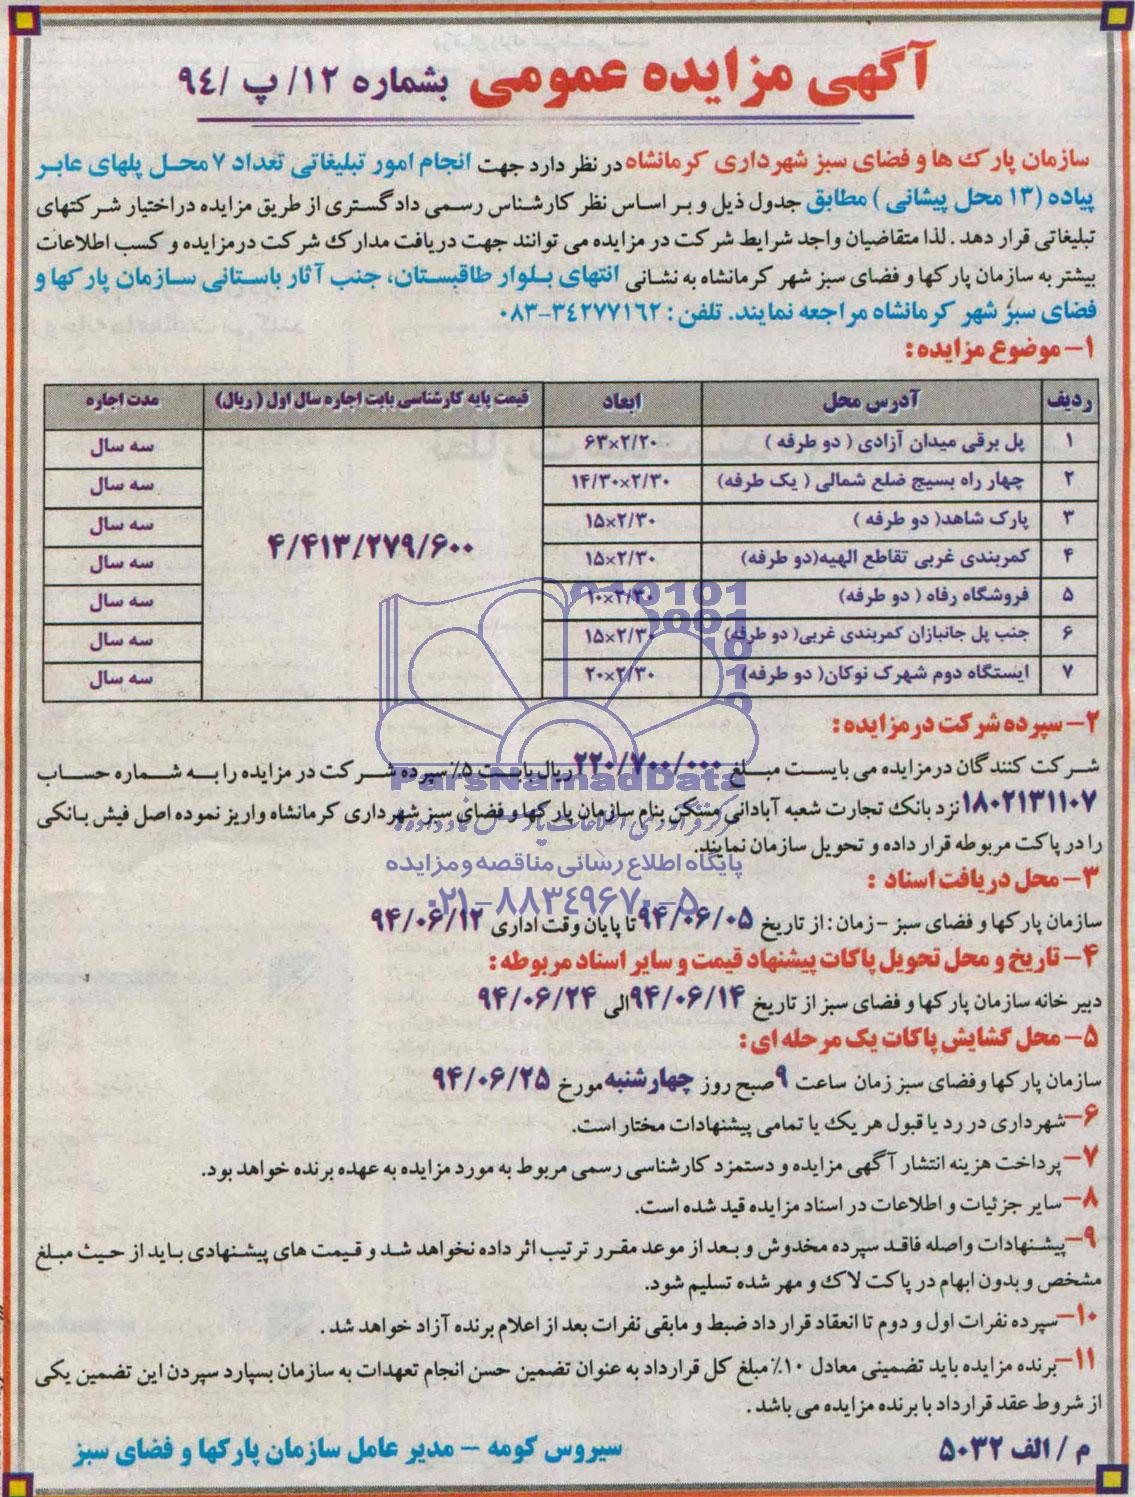 آگهی مزایده عمومی بشماره ۱۲/ پ /۹٤
سازمان پارک ها و فضای سبز شهرداری کرمانشاه در نظر دارد جهت انجام امور تبلیغاتی تعداد ۷ محل پلهای عابر
پیاده (۱۳ محل پیشانی ) مطابق جدول ذیل و بر اساس نظر کارشناس رسمی دادگستری از طریق مزایده در اختیار شرکتهای
تبلیغاتی قرار دهد . لذا متقاضیان واجد شرایط شرکت در مزایده می توانند جهت دریافت مدارک شرکت درمزایده و کسب اطلاعات
بیشتر به سازمان پارکها و فضای سبز شهر کرمانشاه به نشانی انتهای بلوار طاقبستان، جنب آثار باستانی سازمان پارکها و
فضای سبز شهر کرمانشاه مراجعه نمایند. تلفن : ۳٤۲۷۷۱٦۲-۰۸۳
۱- موضوع مزایده :
ردیف آدرس محل ابعاد قیمت پایه کارشناسی بابت اجاره سال اول ( ریال) مدت اجاره
۱ پل برقی میدان آزادی ( دو طرفه ) ۶۳×۲/۲۰ سه سال
۲ چهار راه بسیج ضلع شمالی ( یک طرفه) ۱۴/۳۰×۲/۳۰ سه سال
۳ پارک شاهد( دو طرفه ) ۱۵×۲/۳۰ سه سال
۴/۴۱۳/۲۷۹/۶۰۰
۴ کمربندی غربی تقاطع الهیه(دو طرفه) ۱۵×۲/۳۰ سه سال
۵ فروشگاه رفاه ( دو طرفه) ۱۰×۲/۳۰ سه سال
۶ جنب پل جانبازان کمربندی غربی( دو طرفه) ۱۵×۲/۳۰ سه سال
۷ ایستگاه دوم شهرک نوکان( دو طرفه) ۲۰×۲/۳۰ سه سال
۲- سپرده شرکت در مزایده :
شرکت کنندگان درمزایده می بایست مبلغ ۲۲۰/۷۰۰/۰۰۰ ریال بابت ۵٪ سپرده شرکت در مزایده را به شماره حساب
۱۸۰۲۱۳۱۱۰۷ نزد بانک تجارت شعبه آبادانی مسکن بنام سازمان پارکها و فضای سبز شهرداری کرمانشاه واریز نموده اصل فیش بانکی
را در پاکت مربوطه قرار داده و تحویل سازمان نمایند.
ParsNamadData
پایگاه اطلاع رسانی مناقصه و مزایده
۰۲۱-۸۸۳٤۹٦۷۰-۵
۳- محل دریافت اسناد :
سازمان پارکها و فضای سبز - زمان : از تاریخ ۹۴/۰۶/۰۵ تا پایان وقت اداری ۹۴/۰۶/۱۲
۴- تاریخ و محل تحویل پاکات پیشنهاد قیمت و سایر اسناد مربوطه :
دبیر خانه سازمان پارکها و فضای سبز از تاریخ ۹۴/۰۶/۱۴ الی ۹۴/۰۶/۲۴
۵- محل گشایش پاکات یک مرحله ای :
سازمان پارکها وفضای سبز زمان ساعت ۹ صبح روز چهارشنبه مورخ ۹۴/۰۶/۲۵
۶- شهرداری در رد یا قبول هر یک یا تمامی پیشنهادات مختار است.
۷- پرداخت هزینه انتشار آگهی مزایده و دستمزد کارشناسی رسمی مربوط به مورد مزایده به عهده برنده خواهد بود.
۸- سایر جزئیات و اطلاعات در اسناد مزایده قید شده است.
۹- پیشنهادات واصله فاقد سپرده مخدوش و بعد از موعد مقرر ترتیب اثر داده نخواهد شد و قیمت های پیشنهادی باید از حیث مبلغ
مشخص و بدون ابهام در پاکت لاک و مهر شده تسلیم شود.
۱۰- سپرده نفرات اول و دوم تا انعقاد قرار داد ضبط و مابقی نفرات بعد از اعلام برنده آزاد خواهد شد .
۱۱- برنده مزایده باید تضمینی معادل ۱۰٪ مبلغ کل قرارداد به عنوان تضمین حسن انجام تعهدات به سازمان بسپارد سپردن این تضمین یکی
از شروط عقد قرارداد با برنده مزایده می باشد .
م / الف ۵۰۳۲
سیروس کومه - مدیر عامل سازمان پارکها و فضای سبز